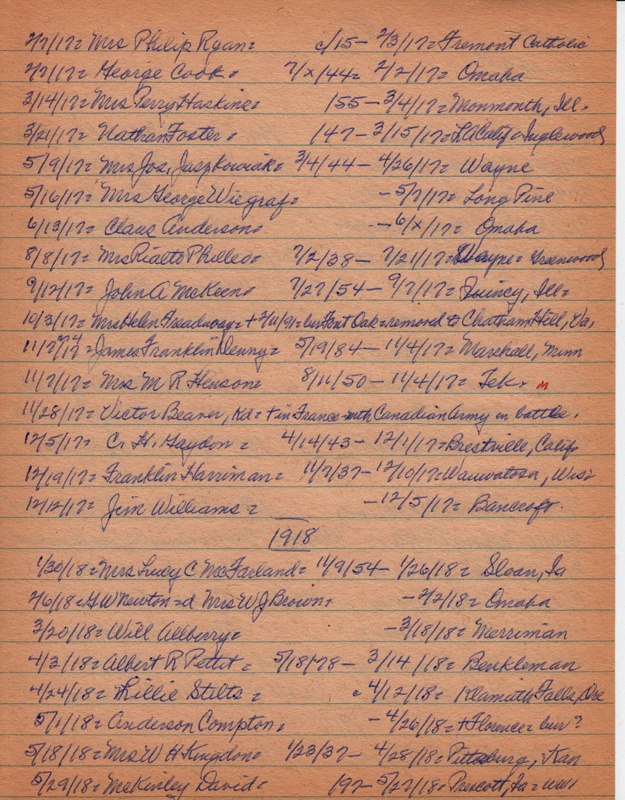 2/7/17= Mrs Philip Ryan= c/15 - 2/3/17= Fremont Catholic
2/7/17= George Cook= 7/x/44= 2/2/17= Omaha
3/14/17= Mrs Perry Haskins= 155 - 3/4/17= Monmonth, Ill.
3/21/17= Nathan Foster= 147 - 3/15/17= LA Calif= Inglewood
5/9/17= Mrs Jos. Jaspkowiak= 3/4/44 - 4/26/17= Wayne
5/16/17= Mrs George Wiegraf= - 5/7/17= Long Pine
6/13/17= Claus Anderson= - 6/x/17= Omaha
8/8/17= Mrs Rialto Philleo= 7/2/38 - 7/21/17= Wayne= Greenwood
9/12/17= John A McKeen= 7/27/54 - 9/7/17= Quincy, Ill=
10/3/17= Mrs Helen Treadway= + 2/11/91= bur Oak= removed to Chatham Hill, Va,
11/7/17= James Franklin Denny= 5/19/84 - 11/4/17= Marshall, Minn
11/7/17= Mrs M R Henson= 8/11/50 - 11/4/17= Tek. M
11/28/17= Victor Beaver, Kd= + in France with Canadian Army in battle.
12/5/17= C. H. Haydon= 4/14/43 - 12/1/17= Brestville, Calif
12/19/17= Franklin Harriman= 11/7/37 - 12/10/17= Wauwatosa, Wis=
12/12/17= Jim Williams= - 12/5/17= Bancroft.
1918
1/30/18= Mrs Lucy C McFarland= 11/9/54 - 1/26/18= Sloan, Ia
2/6/18= G W Newton= d Mrs W J Brown= - 2/2/18= Omaha
3/20/18= Will Allberry= - 3/18/18= Merriman
4/3/18= Albert R Pettit= 5/18/78 - 3/14/18= Benkleman
4/24/18= Lillie Stilts= c 4/12/18= Klamath Falls, Ore
5/1/18= Anderson Compton= - 4/26/18= + Florence= bur?
5/18/18= Mrs W H Kingdon= 1/23/37 - 4/28/18= Pittsburg, Kan
5/29/18= McKinley David= 197 - 5/27/18= Prescott, Ia= WW1